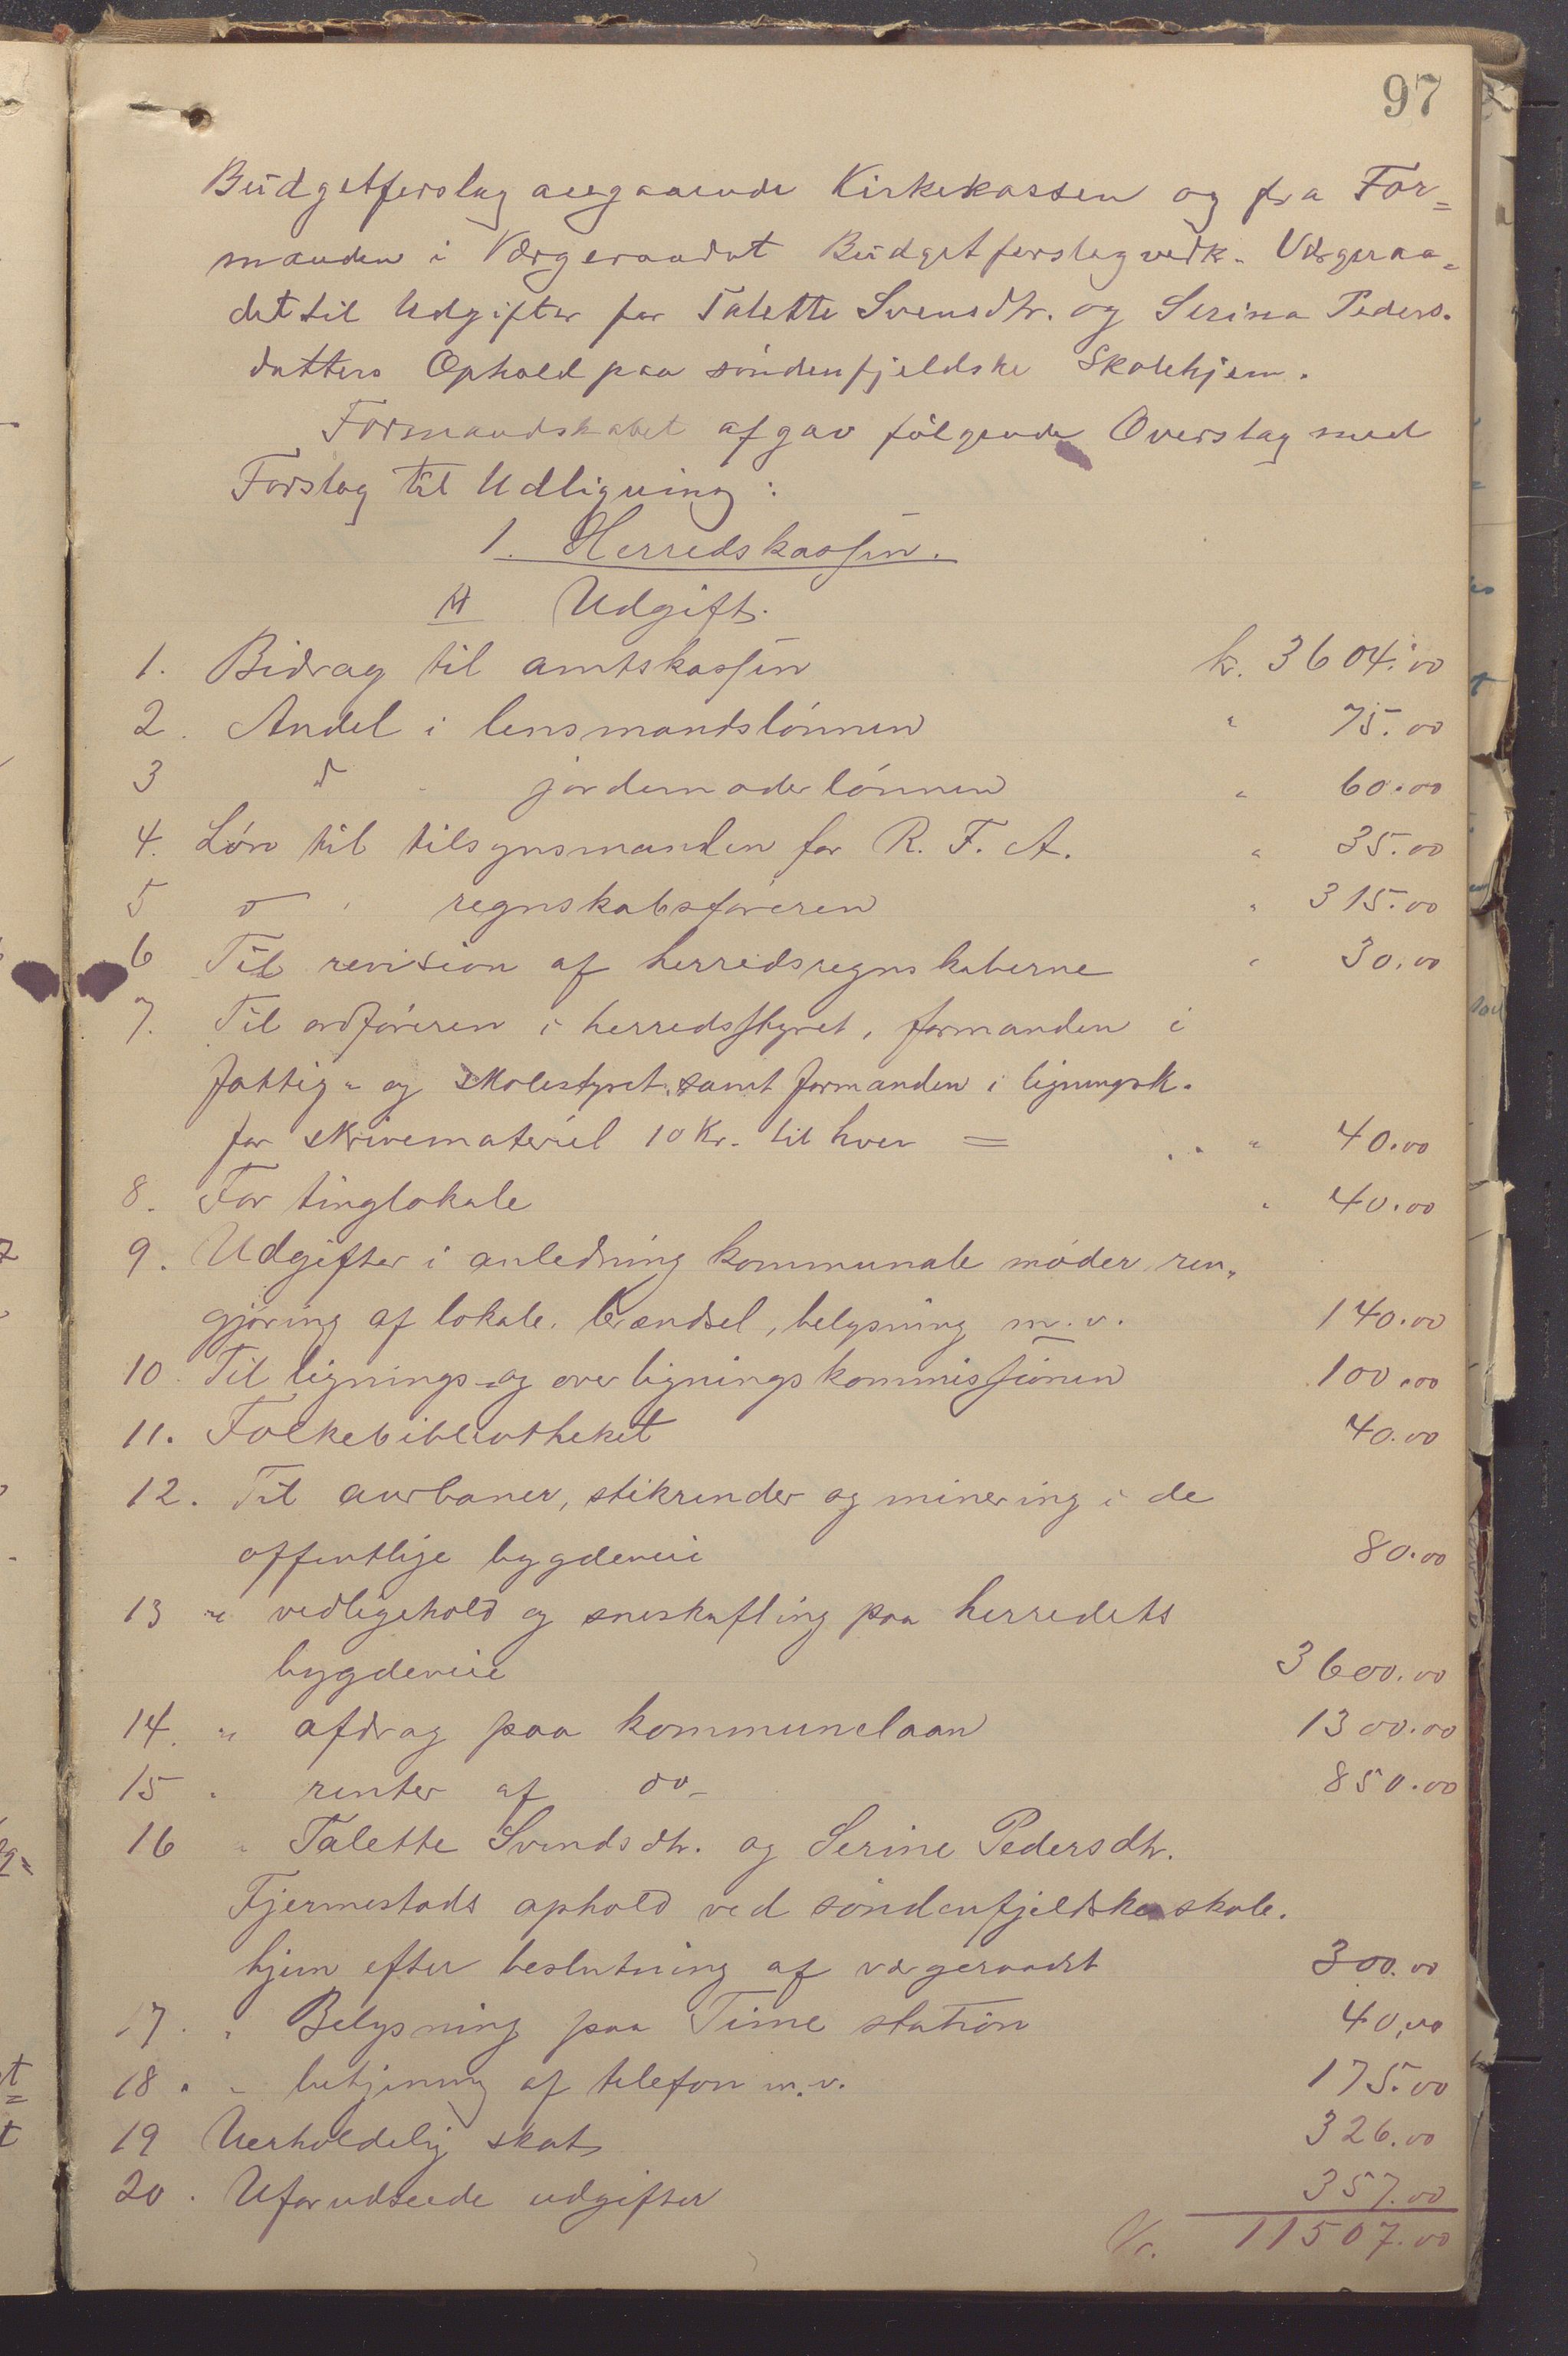 97
Budgetforslag angaaende Kirkekassen og fra For=
manden i Værgeraadet Budgetforslag vedk. Værgeraa=
det til Udgifter for Talette Svensdtr. og Serina Peders.
datters Ophold paa søndenfjeldske Skolehjem.
Formandskabet afgav følgende Overslag med
Forslag til Udligning:
1. Herredskassen.
A Udgift.
1. Bidrag til amtskassen kr. 3604.00
2. Andel i lensmandslønnen " 75.00
3 d " jordemoderlønnen " 60.00
4. Løn til tilsynsmanden for R. F. A. " 35.00
5 d " regnskabsføreren " 315.00
6 Til revision af herredsregnskaberne " 30.00
7. Til ordføreren i herredsstyret, formanden i
fattig- og skolestyret, samt formanden i ligningsk.
for skrivemateriel 10 Kr. til hver = " 40.00
8. For tinglokale " 40.00
9. Udgifter i anledning kommunale møder, ren-
gjøring af lokale, brændsel, belysning m.v. 140.00
10. Til lignings- og overligningskommissionen 100.00
11. Folkebibliotheket 40.00
12. Til aurbaner, stikrender og minering i de
offentlige bygdeveie 80.00
13 " vedligehold og sneskufling paa herredets
bygdeveie 3600.00
14. " afdrag paa kommunelaan 1300.00
15 " renter af do- 850.00
16 " Talette Svendsdtr. og Serine Pedersdtr.
Fjermestads ophold ved søndenfjeldske skole.
hjem efter beslutning af værgeraadet 300.00
17. " Belysning paa Time station 40,00
18. " betjening af telefon m.v. 175.00
19 Uerholdelig skat 326.00
20. Uforudseede udgifter 357.00
Kr. 11507.00